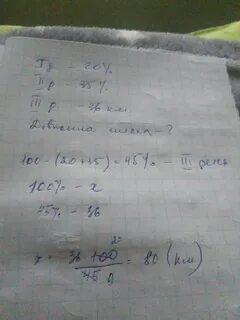 I д - 20%
II д - 35%
III д - 36 км
Довжина шляху - ?
100 - (20+35) = 45% - III день
100% - x
45% - 36
x = 36 100 20 / 45 9 = 80 (км)